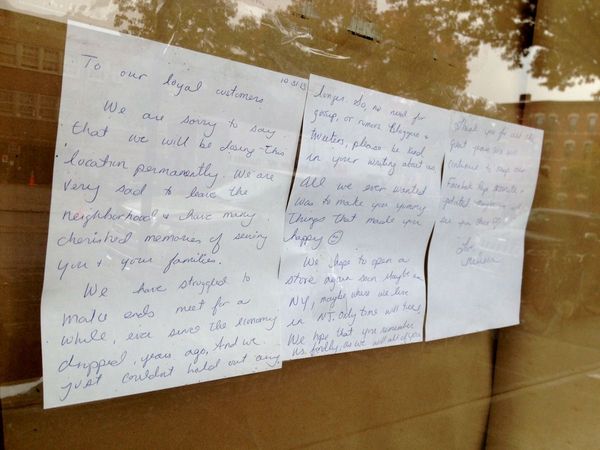 10.31.13
To our loyal customers
We are sorry to say
that we will be closing this
location permanently. We are
very sad to leave the
neighborhood & have many
cherished memories of serving
you & your families.
We have struggled to
make ends meet for a
while, ever since the economy
dropped, years ago, And we
just couldn't hold out any
longer. So, no need for
gossip, or rumors bloggers &
tweeters, please be kind
in your writing about us
All we ever wanted
was to make you yummy
things that made you
happy ☺
We hope to open a
store again soon maybe in
NY, maybe where we live
in NJ. Only time will tell,
We hope that you remember
us, fondly, as we will all of you
Thank you for
great years
continue to
Facebook Page
see you